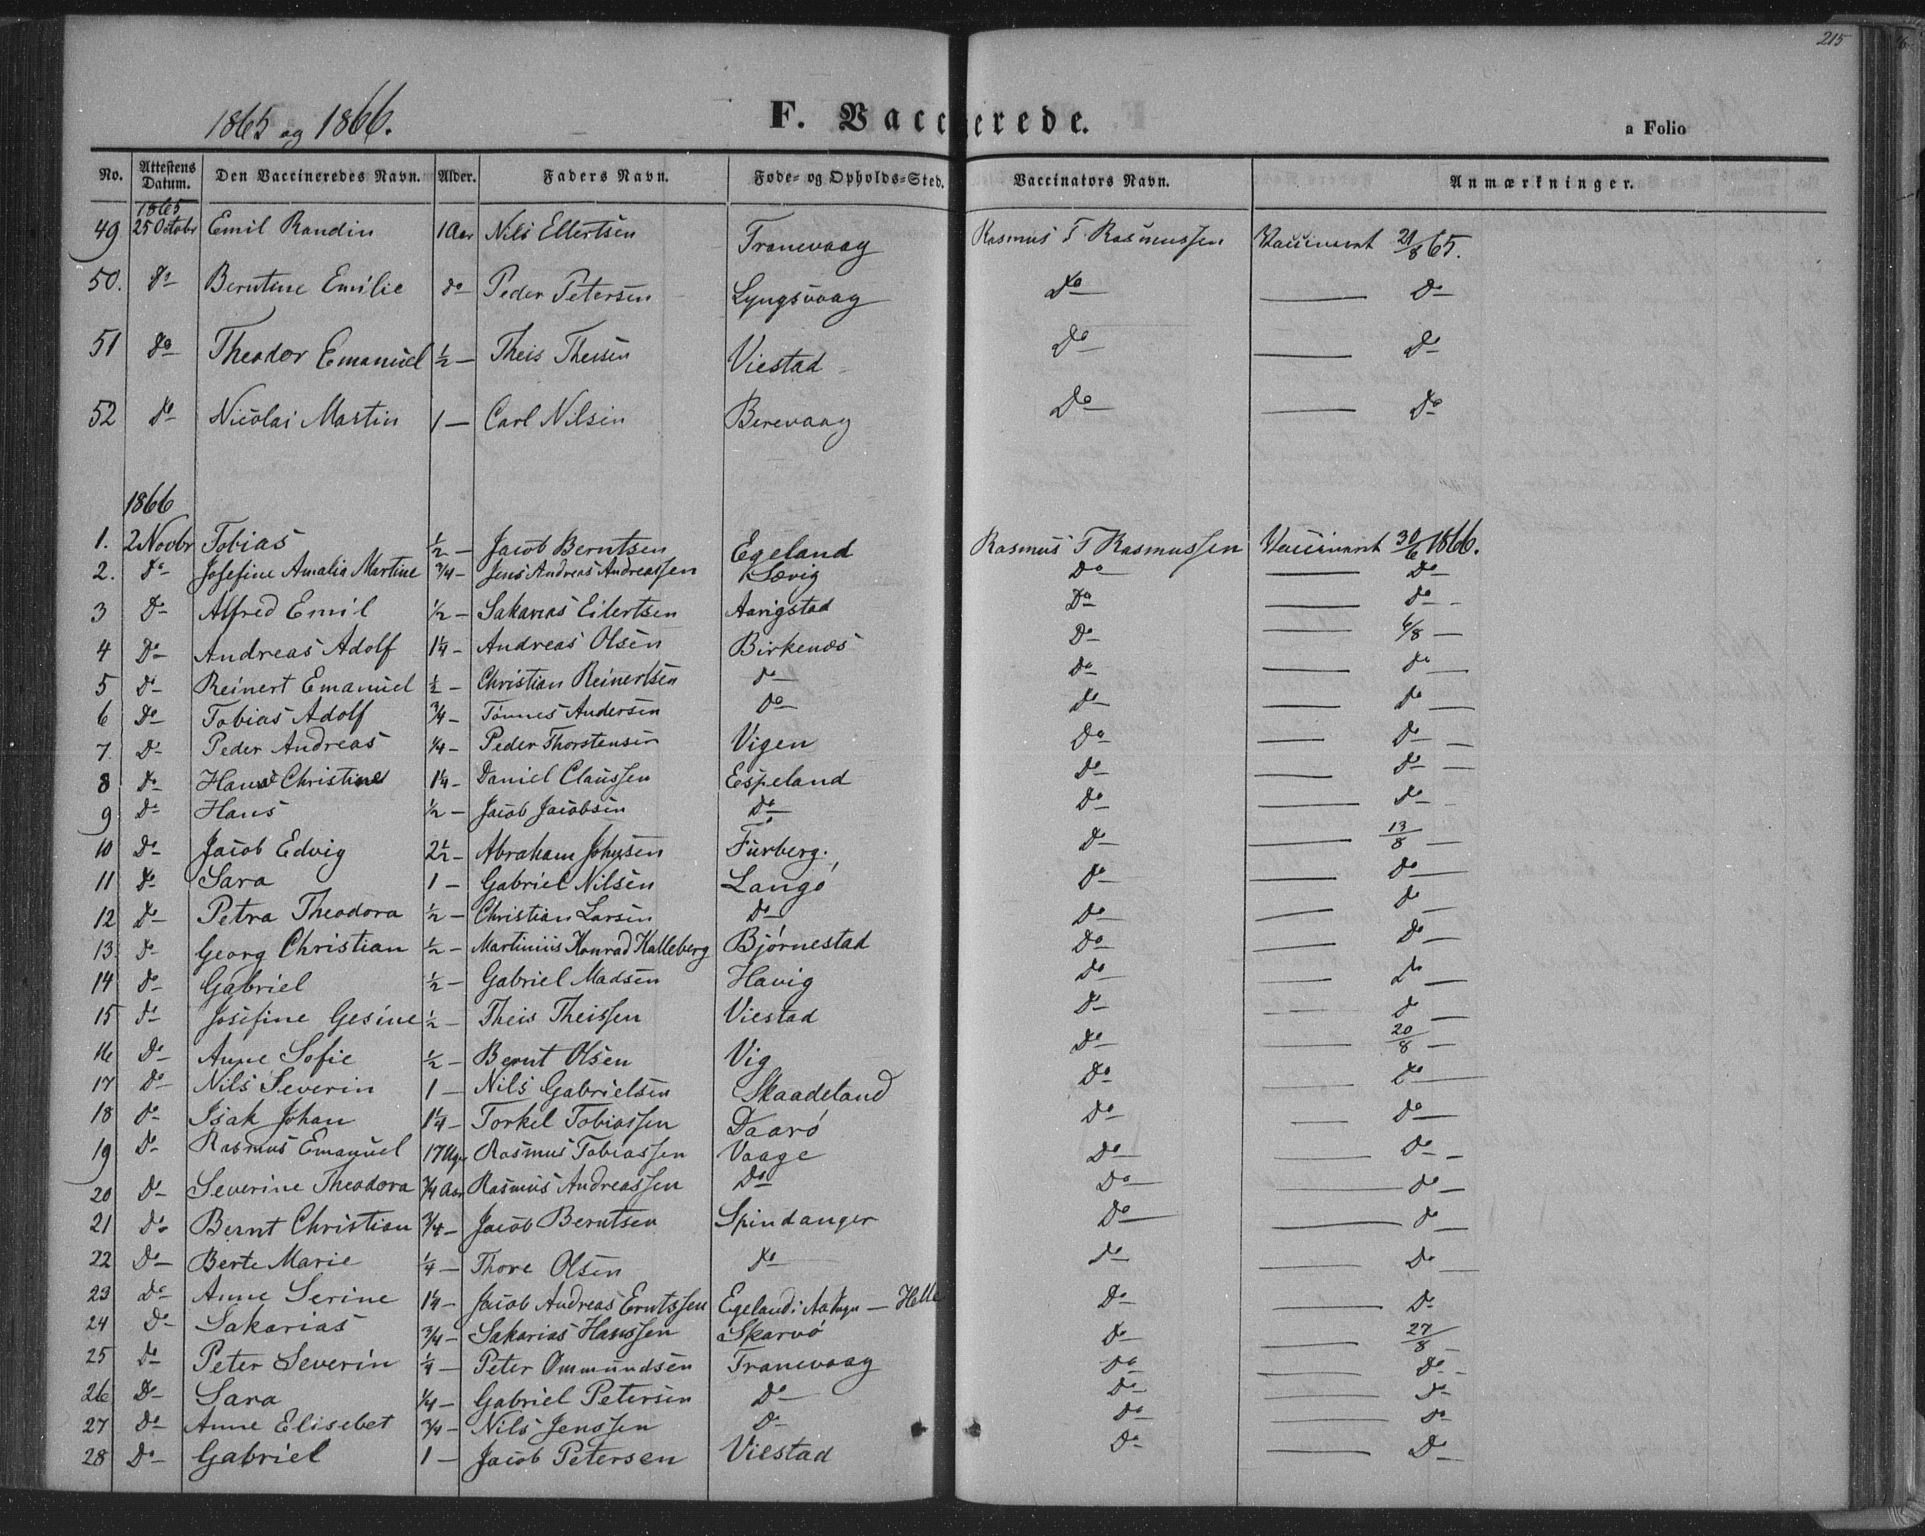 215
1865 og 1866.
F. Vaccinerede.
a Folio
No. | Attestens Datum. | Den Vaccineredes Navn. | Alder. | Faders Navn. | Føde- og Opholds-Sted. | Vaccinators Navn. | Anmærkninger.
1865
49 | 25 Octobr | Emil Randin | 1 Aar | Nils Ellertsen | Tranevaag | Rasmus T Rasmussen | Vaccineret 21/8 65.
50. | Do | Berntine Emilie | do | Peder Petersen | Lyngsvaag | Do | — Do
51 | Do | Theodor Emanuel | ½ — | Theis Theisen | Viestad | Do | — Do
52 | Do | Nicolai Martin | 1 — | Carl Nilsen | Berevaag | Do | — Do
1866
1. | 2 Novbr | Tobias | ½ — | Jacob Berntsen | Egeland | Rasmus T Rasmussen | Vaccineret 30/6 1866.
2. | Do | Josefine Amalia Martine | ¾ — | Jens Andreas Andreassen | Sævig | Do | — Do
3 | Do | Alfred Emil | ½ — | Sakarias Eilertsen | Aavigstad | Do | — Do —
4 | Do | Andreas Adolf | 1¼ — | Andreas Olsen | Birkenæs | Do | — 6/8 —
5 | Do | Reinert Emanuel | ½ — | Christian Reinertsen | do | Do | — Do —
6 | Do | Tobias Adolf | ¾ — | Tønnes Andersen | Do | Do | — Do —
7. | Do | Peder Andreas | ¼ — | Peder Thorstensen | Vigen | Do | — Do —
8 | Do | Hans Christian | 1¼ — | Daniel Claussen | Espeland | Do | — Do —
9 | Do | Hans | ½ — | Jacob Jacobsen | Do | Do | — Do —
10 | Do | Jacob Edvig | 2½ — | Abraham Johnsen | Furberg. | Do | — 13/8 —
11 | Do | Sara | 1 — | Gabriel Nilsen | Langø | Do | — Do —
12 | Do | Petra Theodora | ½ — | Christian Larsen | Do | Do | — Do —
13. | Do | Georg Christian | ½ — | Martinius Konrad Kalleberg | Bjørnestad | Do | — Do —
14 | Do | Gabriel | ½ — | Gabriel Madsen | Havig | Do | — Do —
15 | Do | Josefine Gesine | ½ — | Theis Theissen | Viestad | Do | — Do —
16 | Do | Anne Sofie | ½ — | Bernt Olsen | Vig | Do | — 20/8 —
17 | Do | Nils Severin | 1 — | Nils Gabrielsen | Skaadeland | Do | — Do —
18 | Do | Isak Johan | 1¼ — | Torkel Tobiassen | Daarø | Do | — Do —
19 | Do | Rasmus Emanuel | 17 Uger | Rasmus Tobiassen | Vaage | Do | — Do —
20 | Do | Severine Theodora | ¾ Aar | Rasmus Andreassen | Do | Do | — Do —
21 | Do | Bernt Christian | ¾ — | Jacob Berntsen | Spindanger | Do | — Do —
22 | Do | Berte Marie | ¼ — | Thore Olsen | Do | Do | — Do —
23 | Do | Anne Serine | 1¼ — | Jacob Andreas Erntssen | Egeland i — Helle | Do | — Do
24 | Do | Sakarias | ¾ — | Sakarias Hanssen | Skarvø | Do | — 27/8 —
25 | Do | Peter Severin | ¼ — | Peter Ommundsen | Tranevaag | Do | — Do —
26 | Do | Sara | ¼ — | Gabriel Petersen | Do | Do | — Do
27 | Do | Anne Elisebet | ¾ — | Nils Jenssen | Do | Do | — Do
28 | Do | Gabriel | 1 — | Jacob Petersen | Viestad | Do | — Do —